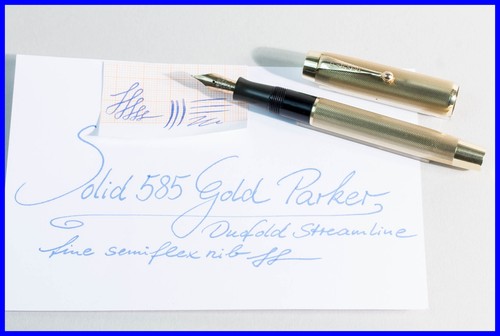 Solid 585 Gold Parker
Duofold Streamline
fine semiflex nib